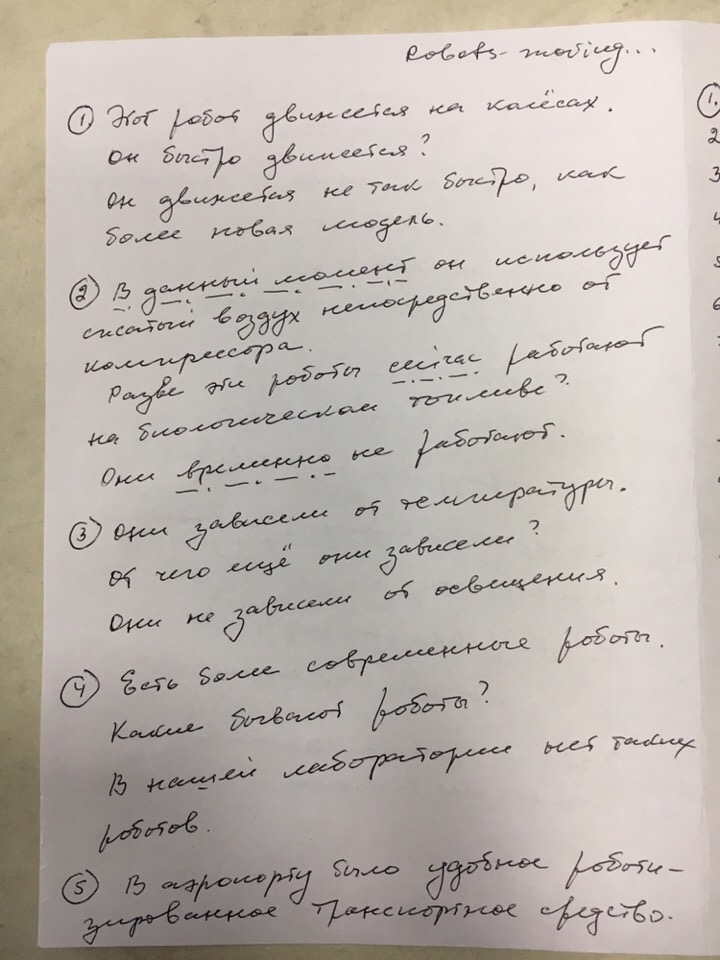 Robots - moving...
① Этот робот движется на колёсах.
Он быстро движется?
Он движется не так быстро, как
более новая модель.
② В данный момент он использует
сжатый воздух непосредственно от
компрессора.
Разве эти роботы сейчас работают
на биологическом топливе?
Они временно не работают.
③ Они зависели от температуры.
От чего ещё они зависели?
Они не зависели от освещения.
④ Есть более современные роботы.
Какие бывают роботы?
В нашей лаборатории нет таких
роботов.
⑤ В аэропорту было удобное роботи-
зированное транспортное средство.
1.
2
3
4
5
6
7